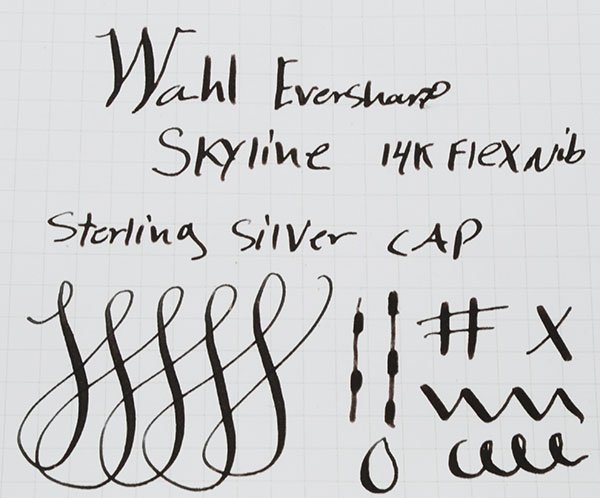 Wahl Eversharp
Skyline 14K Flex Nib
Sterling Silver CAP
# X